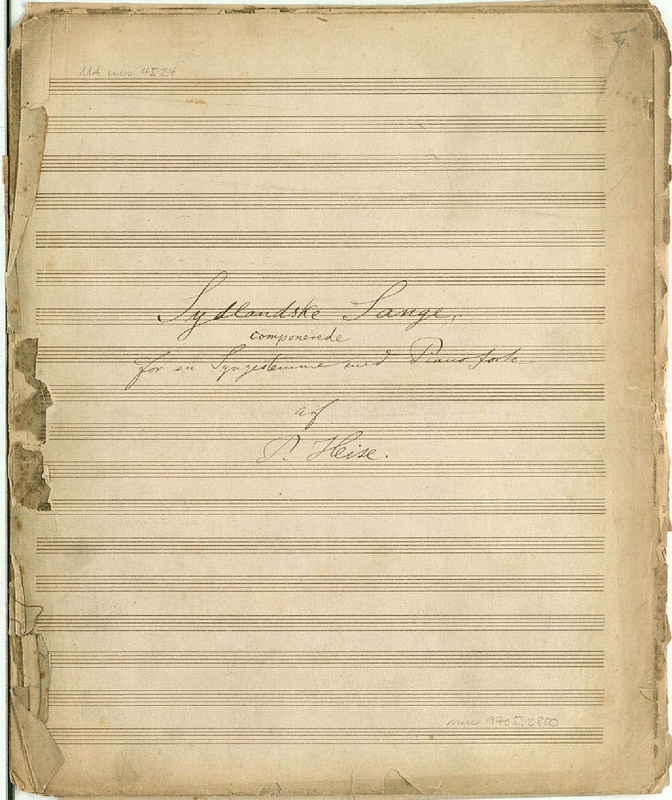 MA ms 4524
Sydlandske Sange,
componerede
for en Syngestemme med Pianoforte
af
P. Heise.
mu 9705.2800